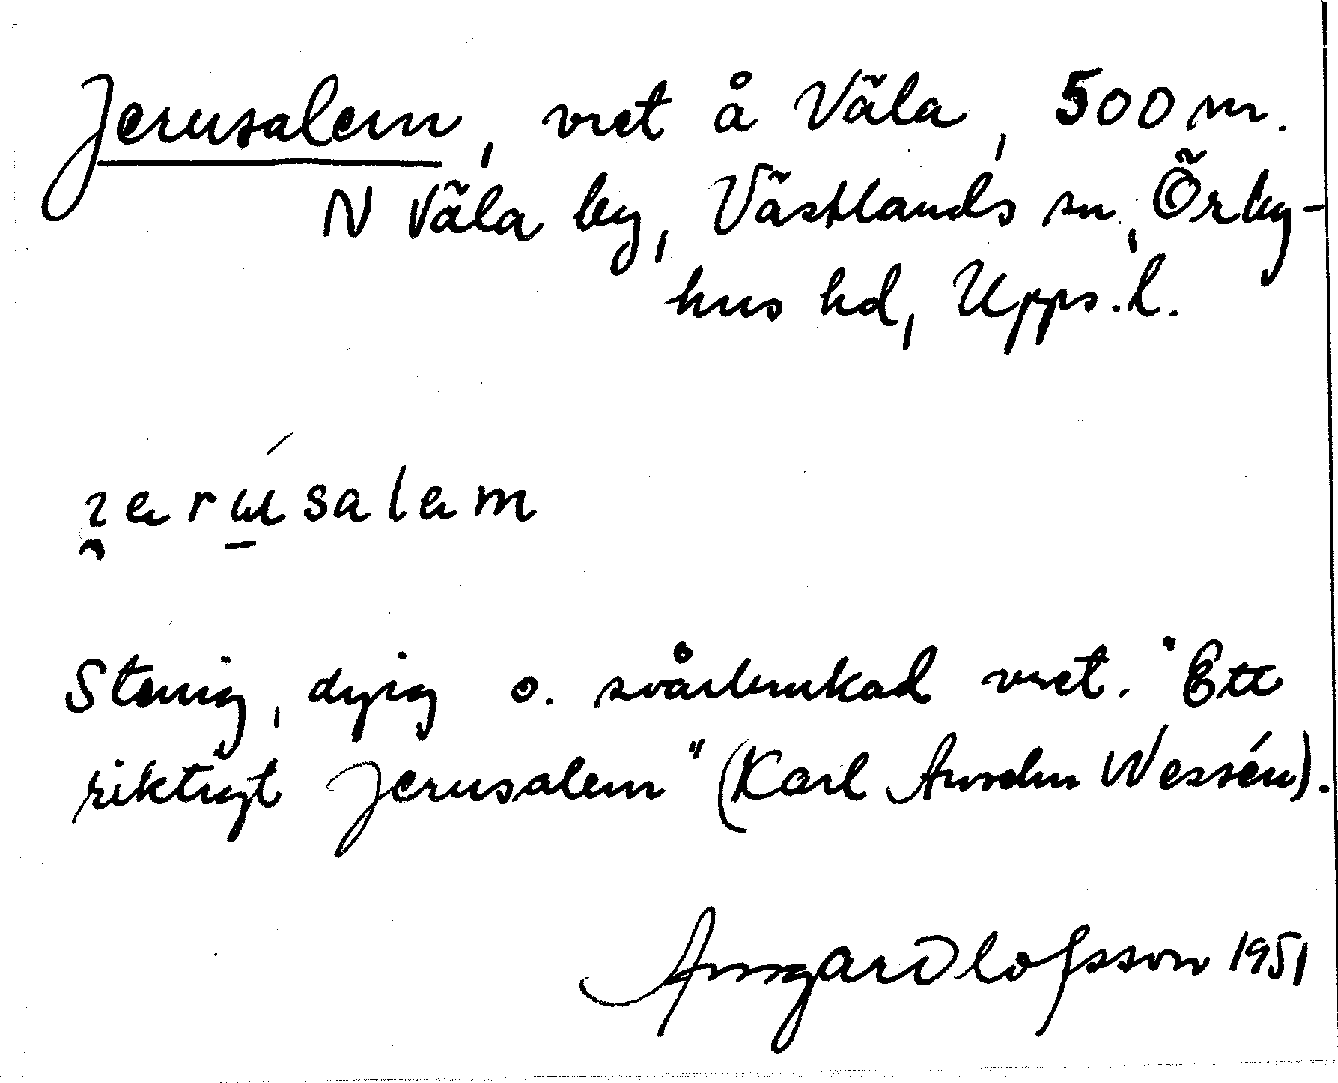 Jerusalem, vret å Väla, 500 m.
N Väla by, Västlands sn, Örby-
hus hd, Upps. l.
jerúsalem
Stenig, dyig o. svårbrukad vret. "Ett
riktigt Jerusalem" (Karl Anselm Wessén).
Ansgar Olofsson 1951